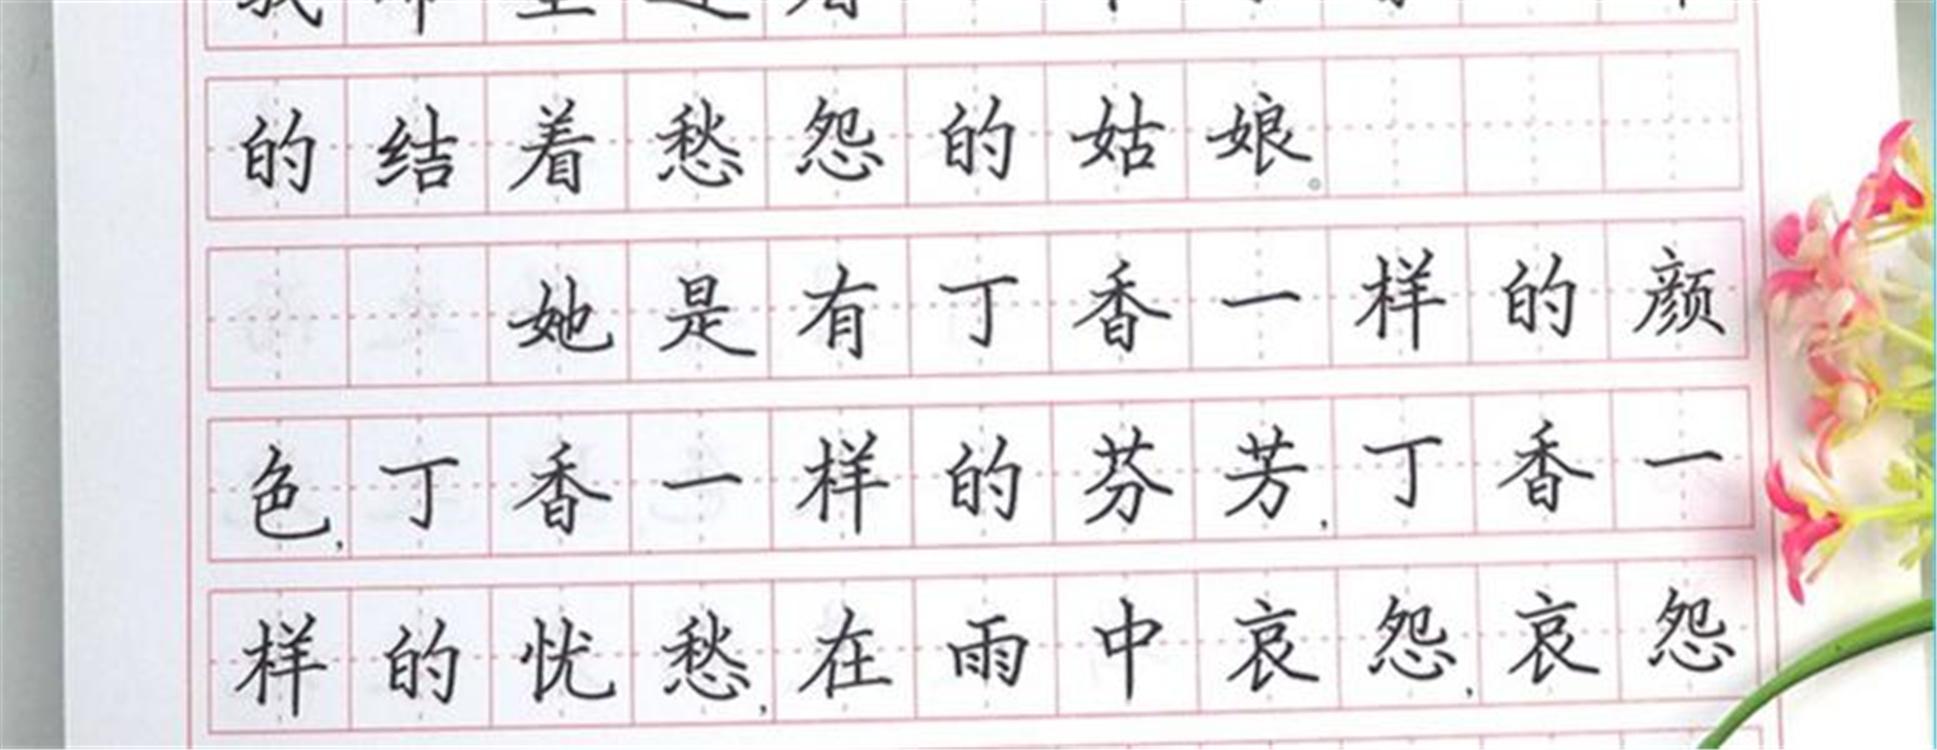 的结着愁怨的姑娘。
她是有丁香一样的颜
色,丁香一样的芬芳,丁香一
样的忧愁,在雨中哀怨,哀怨